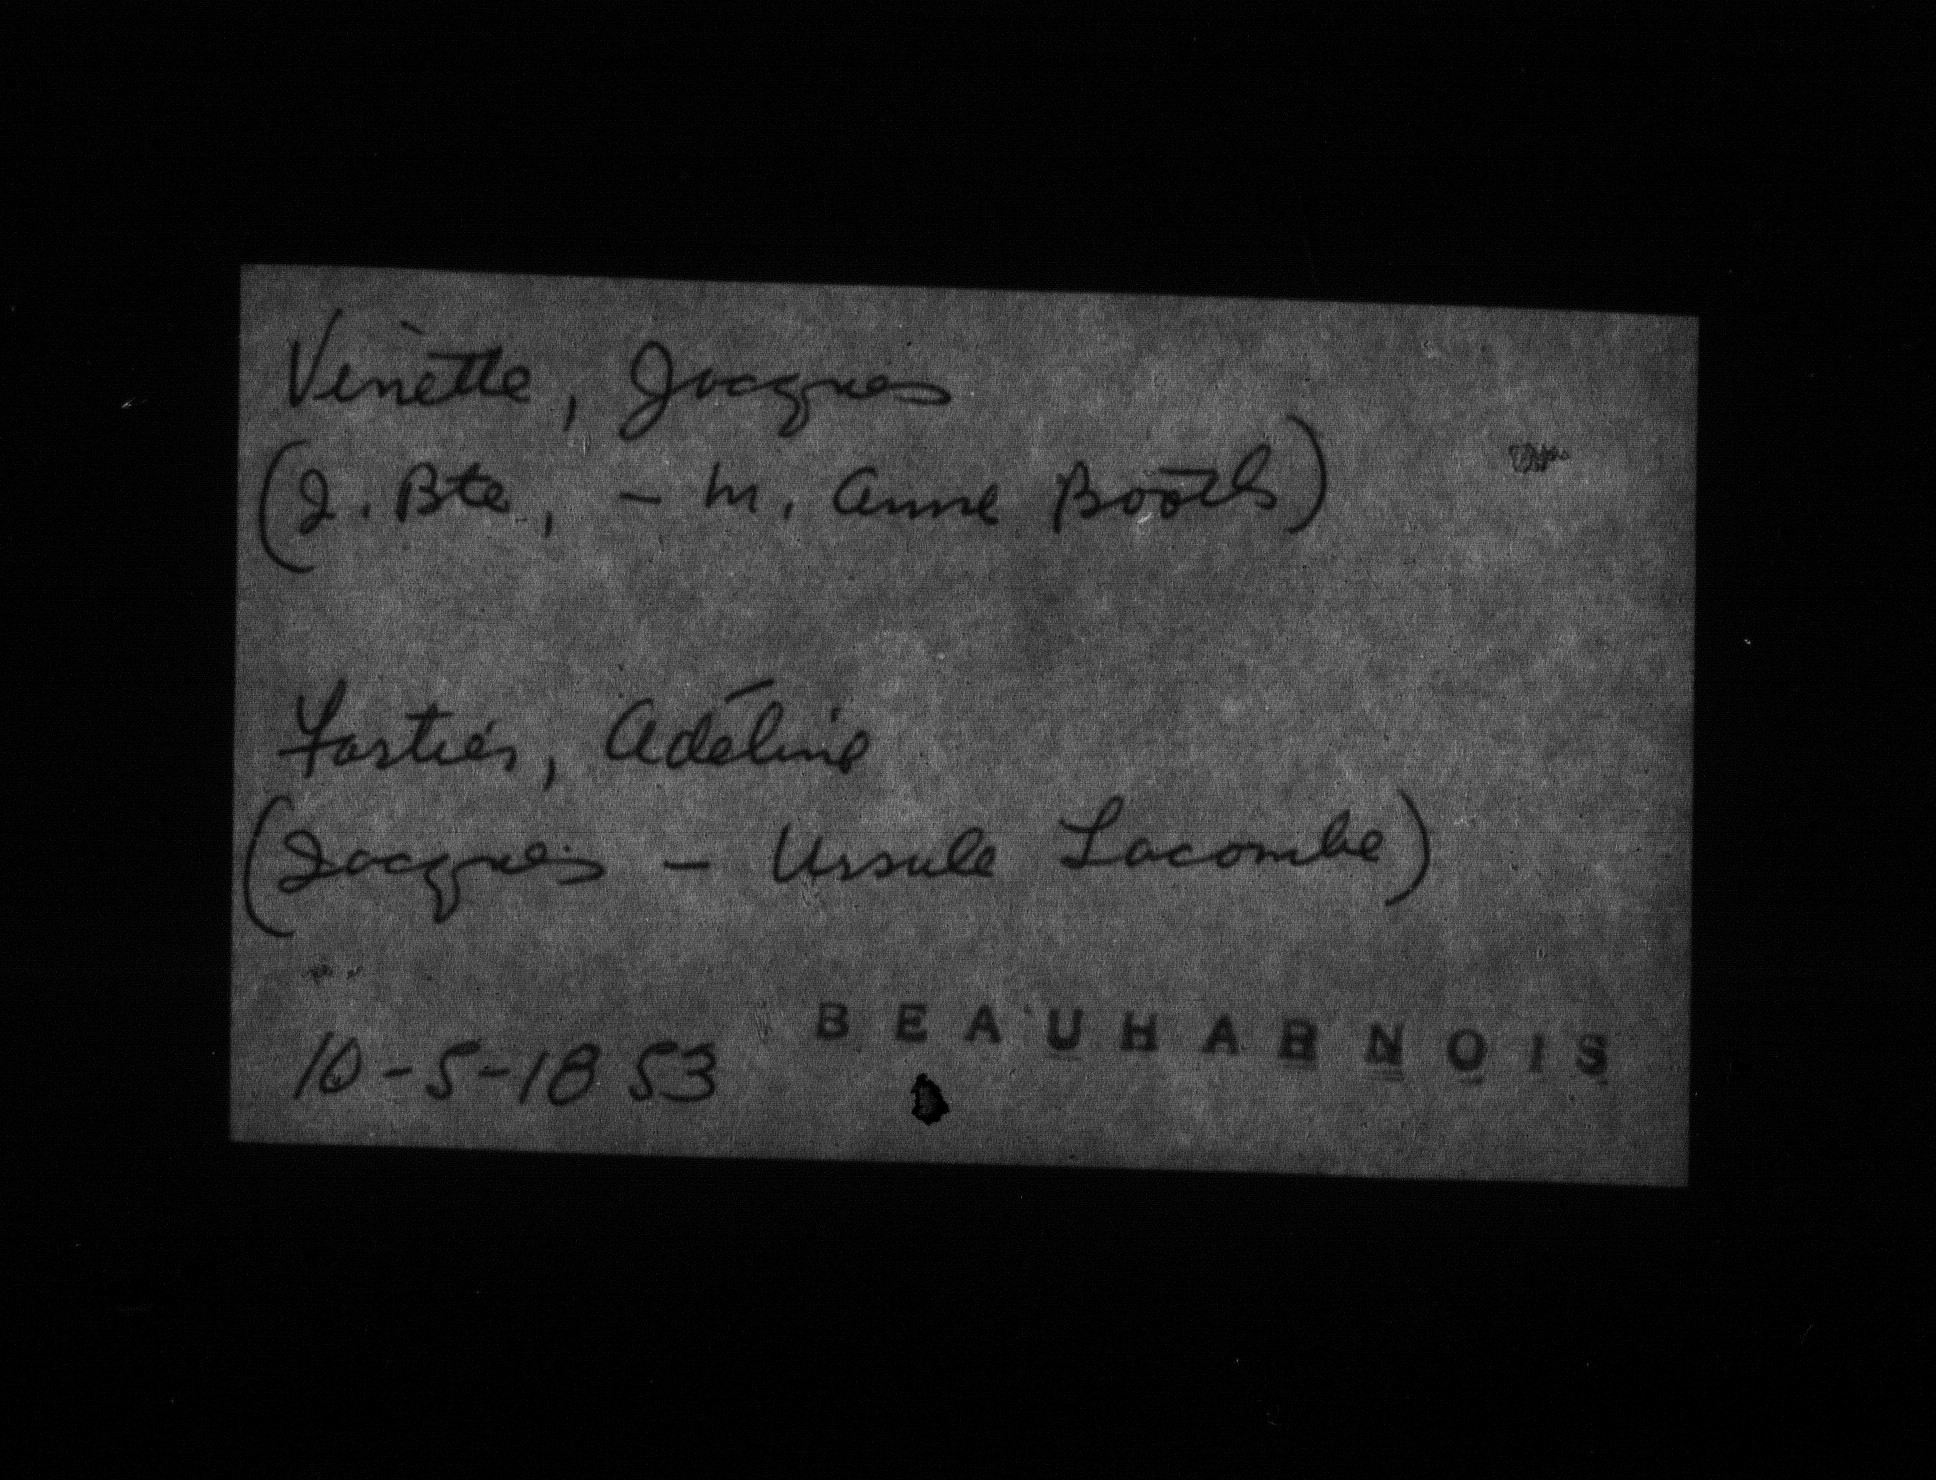 Vinette, Jacques
(J. Bte, - M. Anne Booth)
Fortier, Adéline
(Jacques - Ursule Lacombe)
10-5-1853 BEAUHARNOIS